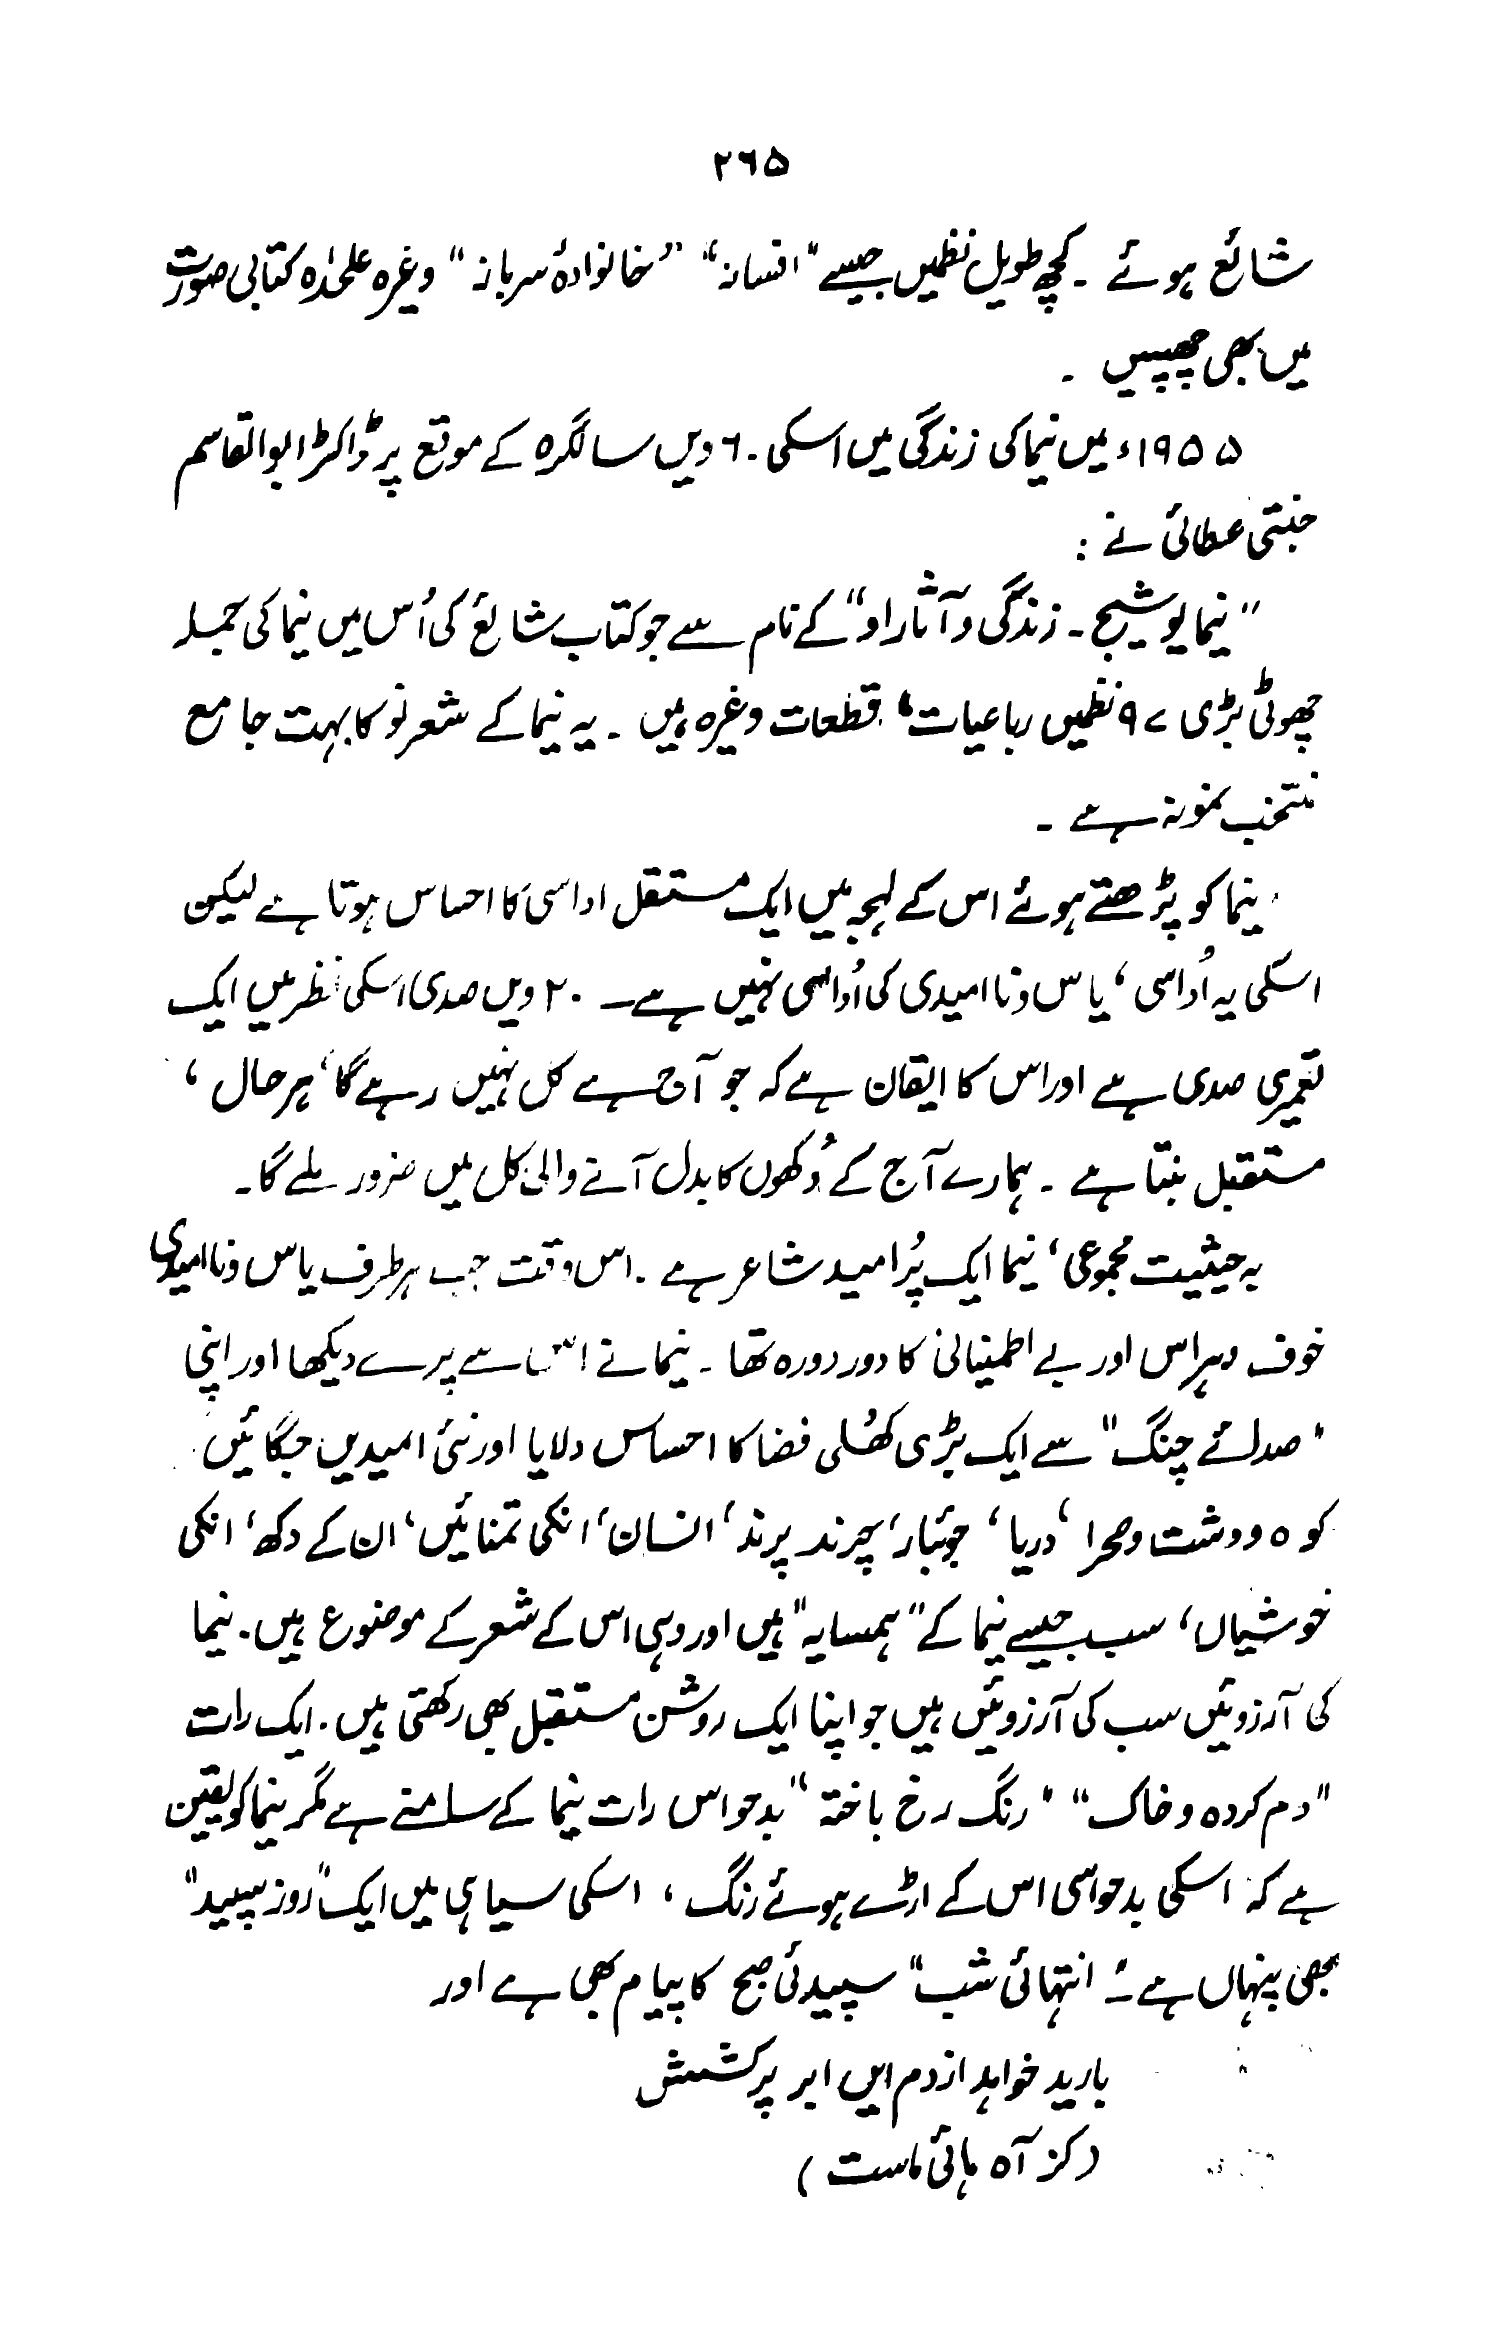 ۲۶۵
شائع ہوئے ۔ کچھ طویل نظمیں جیسے "افسانہ" "خانوادۂ سرباز" وغیرہ علیحدٰہ کتابی صورت
میں بھی چھپیں ۔
۱۹۵۵ء میں نیما کی زندگی میں اسکی ۶۰ ویں سالگرہ کے موقع پر ڈاکٹر ابوالقاسم
جنتی عطائی نے :
"نیما یوشیج ۔ زندگی و آثار او" کے نام سے جو کتاب شائع کی اُس میں نیما کی جملہ
چھوٹی بڑی ۹۷ نظمیں رباعیات، قطعات وغیرہ ہیں ۔ یہ نیما کے شعر نو کا بہت جامع
منتخب نمونہ ہے ۔
نیما کو پڑھتے ہوئے اس کے لہجہ میں ایک مستقل اداسی کا احساس ہوتا ہے لیکن
اسکی یہ اُداسی، یاس و ناامیدی کی اُداسی نہیں ہے ۔ ۲۰ ویں صدی اسکی نظر میں ایک
تعمیری صدی ہے اور اس کا ایقان ہے کہ جو آج ہے کل نہیں رہے گا، ہر حال،
مستقبل بنتا ہے ۔ ہمارے آج کے دُکھوں کا بدل آنے والی کل میں ضرور ملے گا ۔
بہ حیثیت مجموعی، نیما ایک پُرامید شاعر ہے ۔ اس وقت جب ہر طرف یاس و ناامیدی
خوف و ہراس اور بے اطمینانی کا دور دورہ تھا ۔ نیما نے اس سے پرے دیکھا اور اپنی
"صدائے چنگ" سے ایک بڑی کھُلی فضا کا احساس دلایا اور نئی امیدیں جگائیں
کوہ و دشت و صحرا، دریا، جوئبار، چرند پرند، انسان، انکی تمنائیں، ان کے دکھ، انکی
خوشیاں، سب جیسے نیما کے "ہمسایہ" ہیں اور وہی اس کے شعر کے موضوع ہیں ۔ نیما
کی آرزوئیں سب کی آرزوئیں ہیں جو اپنا ایک روشن مستقبل بھی رکھتی ہیں ۔ ایک رات
"دم کردہ و خاک" "رنگ رخ باختہ" بدحواس رات نیما کے سامنے ہے مگر نیما کو یقین
ہے کہ اسکی بدحواسی اس کے اڑے ہوئے رنگ، اسکی سیاہی میں ایک "روز سپید"
بھی پنہاں ہے ۔ "انتہائی شب" سپیدئی صبح کا پیام بھی ہے اور
بارید خواہد از دم ایں ابر پر کشش
(کز آہ ہائی ماست)